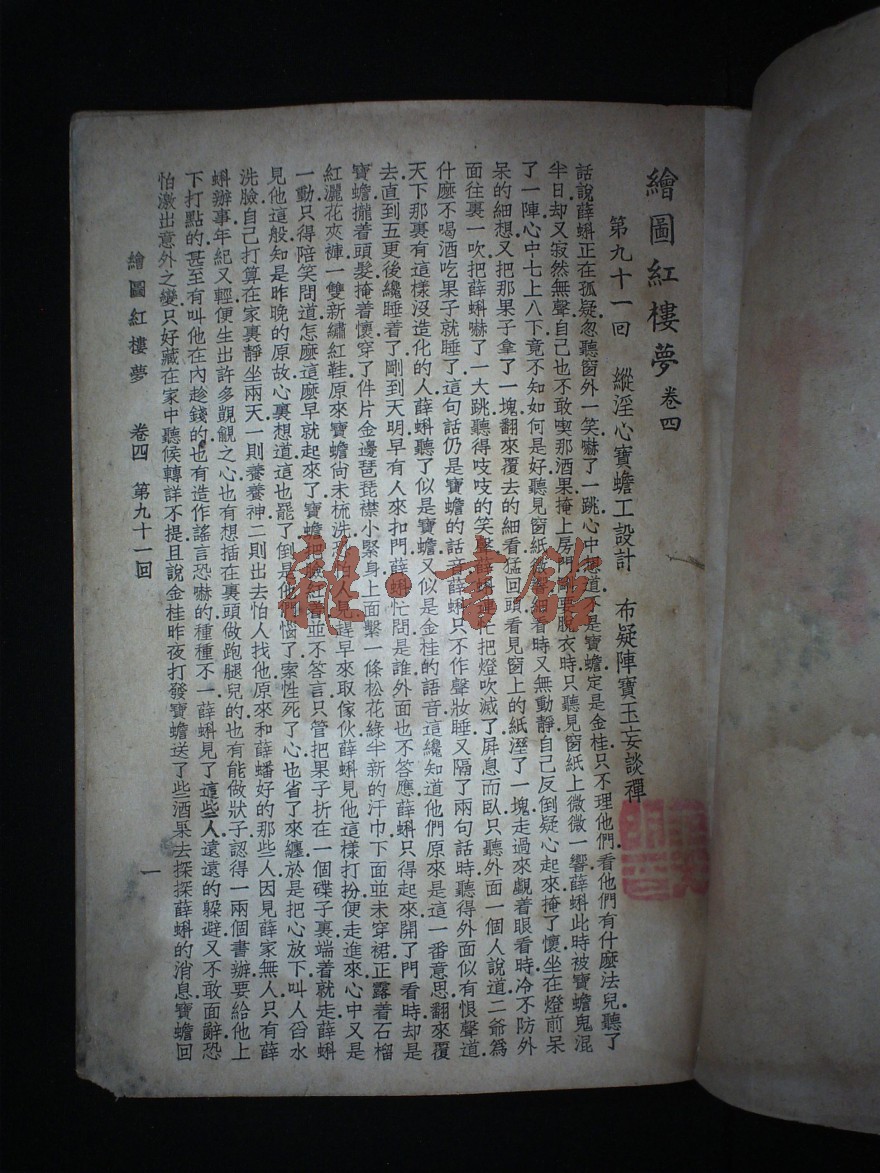 繪圖紅樓夢 卷四
第九十一回 縱淫心寶蟾工設計 布疑陣寶玉妄談禪
話說薛蝌正在孤疑忽聽窗外一笑嚇了一跳心中想道不是寶蟾定是金桂只不理他們看他們有什麼法兒聽了
半日却又寂然無聲自己也不敢喫那酒果掩上房門剛要脫衣時只聽見窗紙上微微一響薛蝌此時被寶蟾鬼混
了一陣心中七上八下竟不知如何是好聽見窗紙微響細看時又無動靜自己反倒疑心起來掩了懷坐在燈前呆
呆的細想又把那果子拿了一塊翻來覆去的細看猛回頭看見窗上的紙溼了一塊走過來覷着眼看時冷不防外
面往裏一吹把薛蝌嚇了一大跳聽得吱吱的笑聲薛蝌連忙把燈吹滅了屏息而臥只聽外面一個人說道二爺爲
什麽不喝酒吃果子就睡了這句話仍是寶蟾的話音薛蝌只不作聲妝睡又隔了兩句話時聽得外面似有恨聲道
天下那裏有這樣沒造化的人薛蝌聽了似是寶蟾又似是金桂的語音這纔知道他們原來是這一番意思翻來覆
去直到五更後纔睡着了剛到天明早有人來扣門薛蝌忙問是誰外面也不答應薛蝌只得起來開了門看時却是
寶蟾攏着頭髮掩着懷穿了件片金邊琵琶襟小緊身上面繫一條松花綠半新的汗巾下面並未穿裙正露着石榴
紅灑花夾褲一雙新繡紅鞋原來寶蟾尚未梳洗恐怕人見趕早來取傢伙薛蝌見他這樣打扮便走進來心中又是
一動只得陪笑問道怎麽這麽早就起來了寶蟾把臉紅着並不答言只管把果子折在一個碟子裏端着就走薛蝌
見他這般知是昨晚的原故心裏想道這也罷了倒是他們惱了索性死了心也省了來纏於是把心放下叫人舀水
洗臉自己打算在家裏靜坐兩天一則養養神二則出去怕人找他原來和薛蟠好的那些人因見薛家無人只有薛
蝌辦事年紀又輕便生出許多覬覦之心也有想插在裏頭做跑腿兒的也有能做狀子認得一兩個書辦要給他上
下打點的甚至有叫他在內趁錢的也有造作謠言恐嚇的種種不一薛蝌見了這些人遠遠的躲避又不敢面辭恐
怕激出意外之變只好藏在家中聽候轉詳不提且說金桂昨夜打發寶蟾送了些酒果去探探薛蝌的消息寶蟾回
繪圖紅樓夢 卷四 第九十一回 一
雜·書館